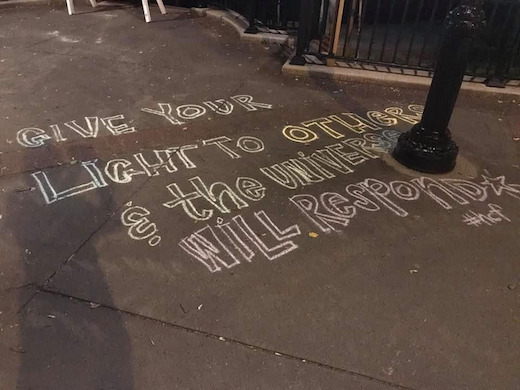 GIVE YOUR
LIGHT TO OTHERS
& the UNIVERSE
& WiLL Respond
#hcf